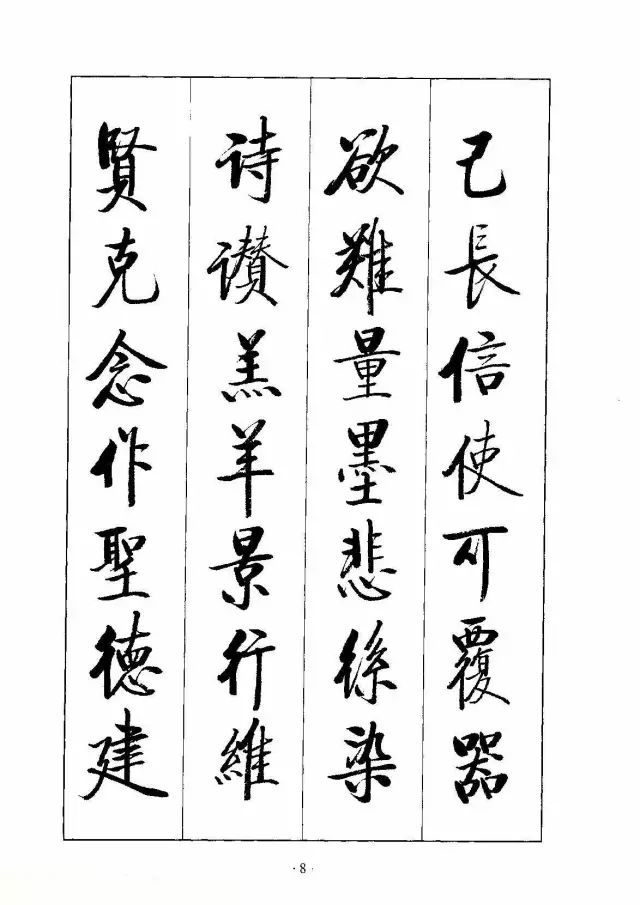 己長信使可覆器
欲難量墨悲絲染
詩讚羔羊景行維
賢克念作聖德建
·8·